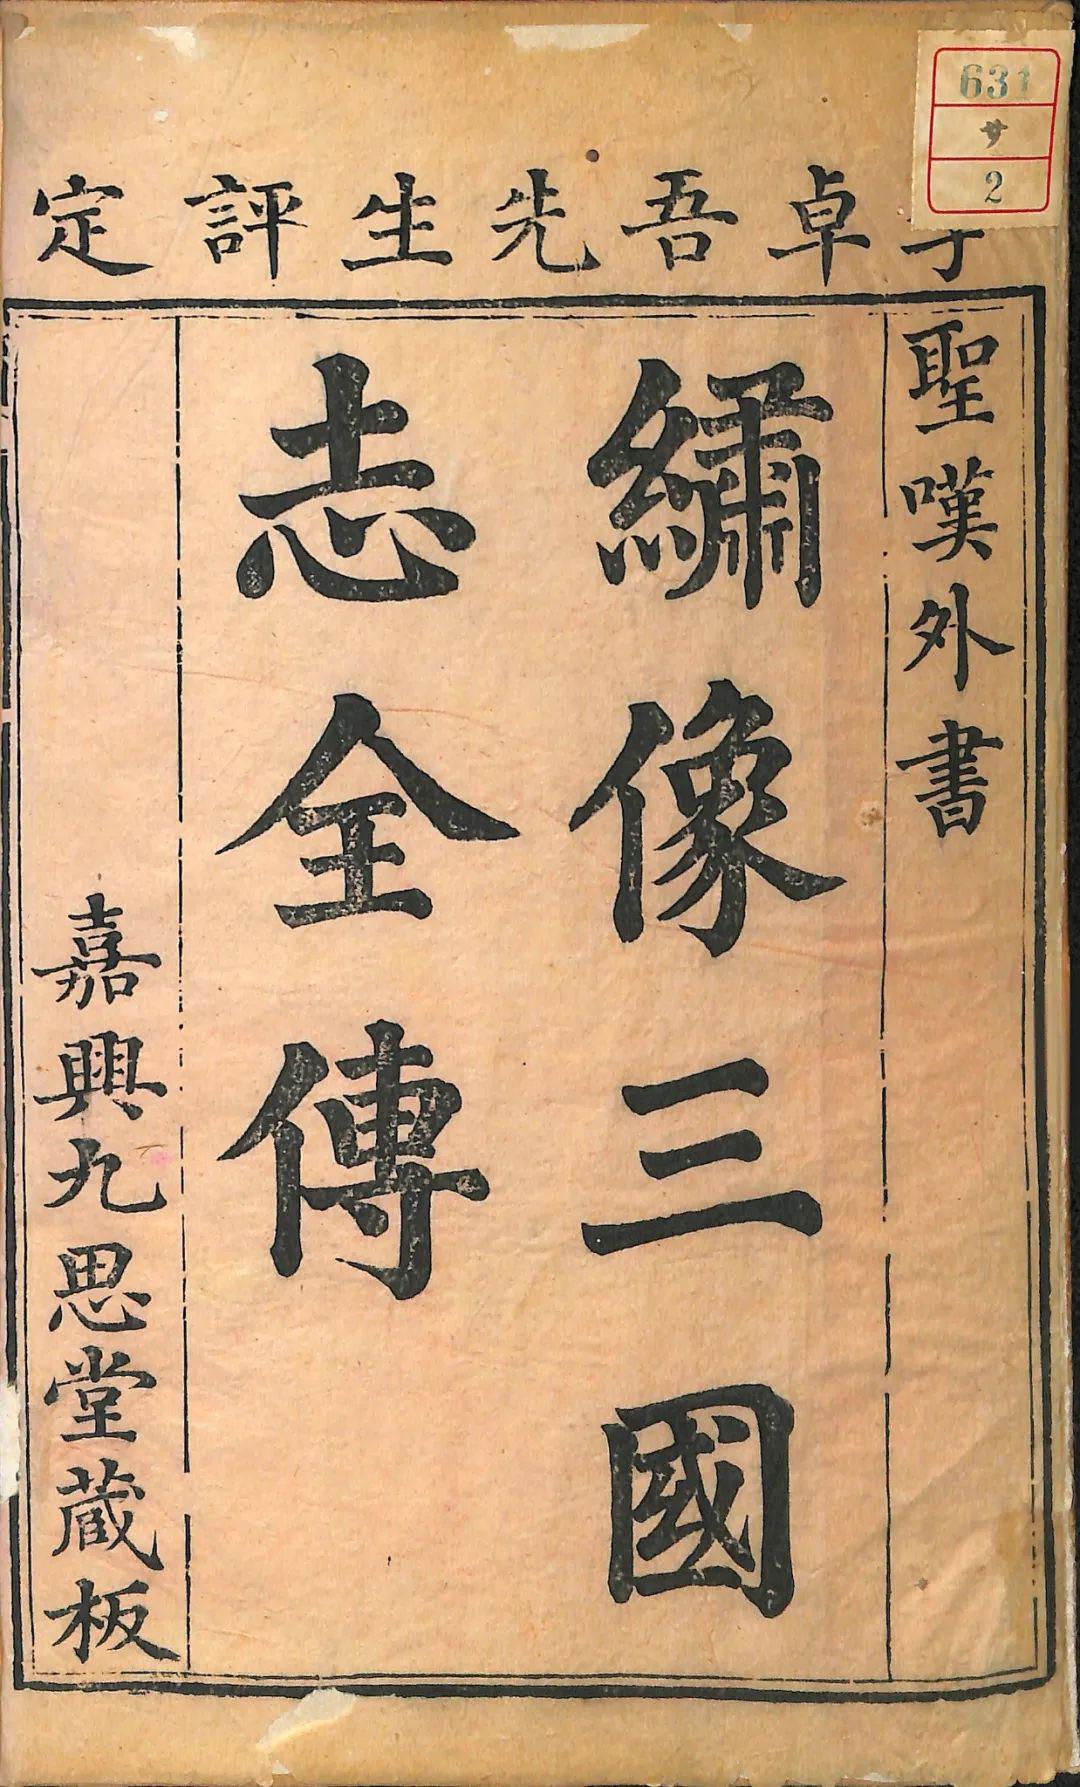 李卓吾先生評定
聖嘆外書
繡像三國
志全傳
嘉興九思堂蔵板
631
サ
2